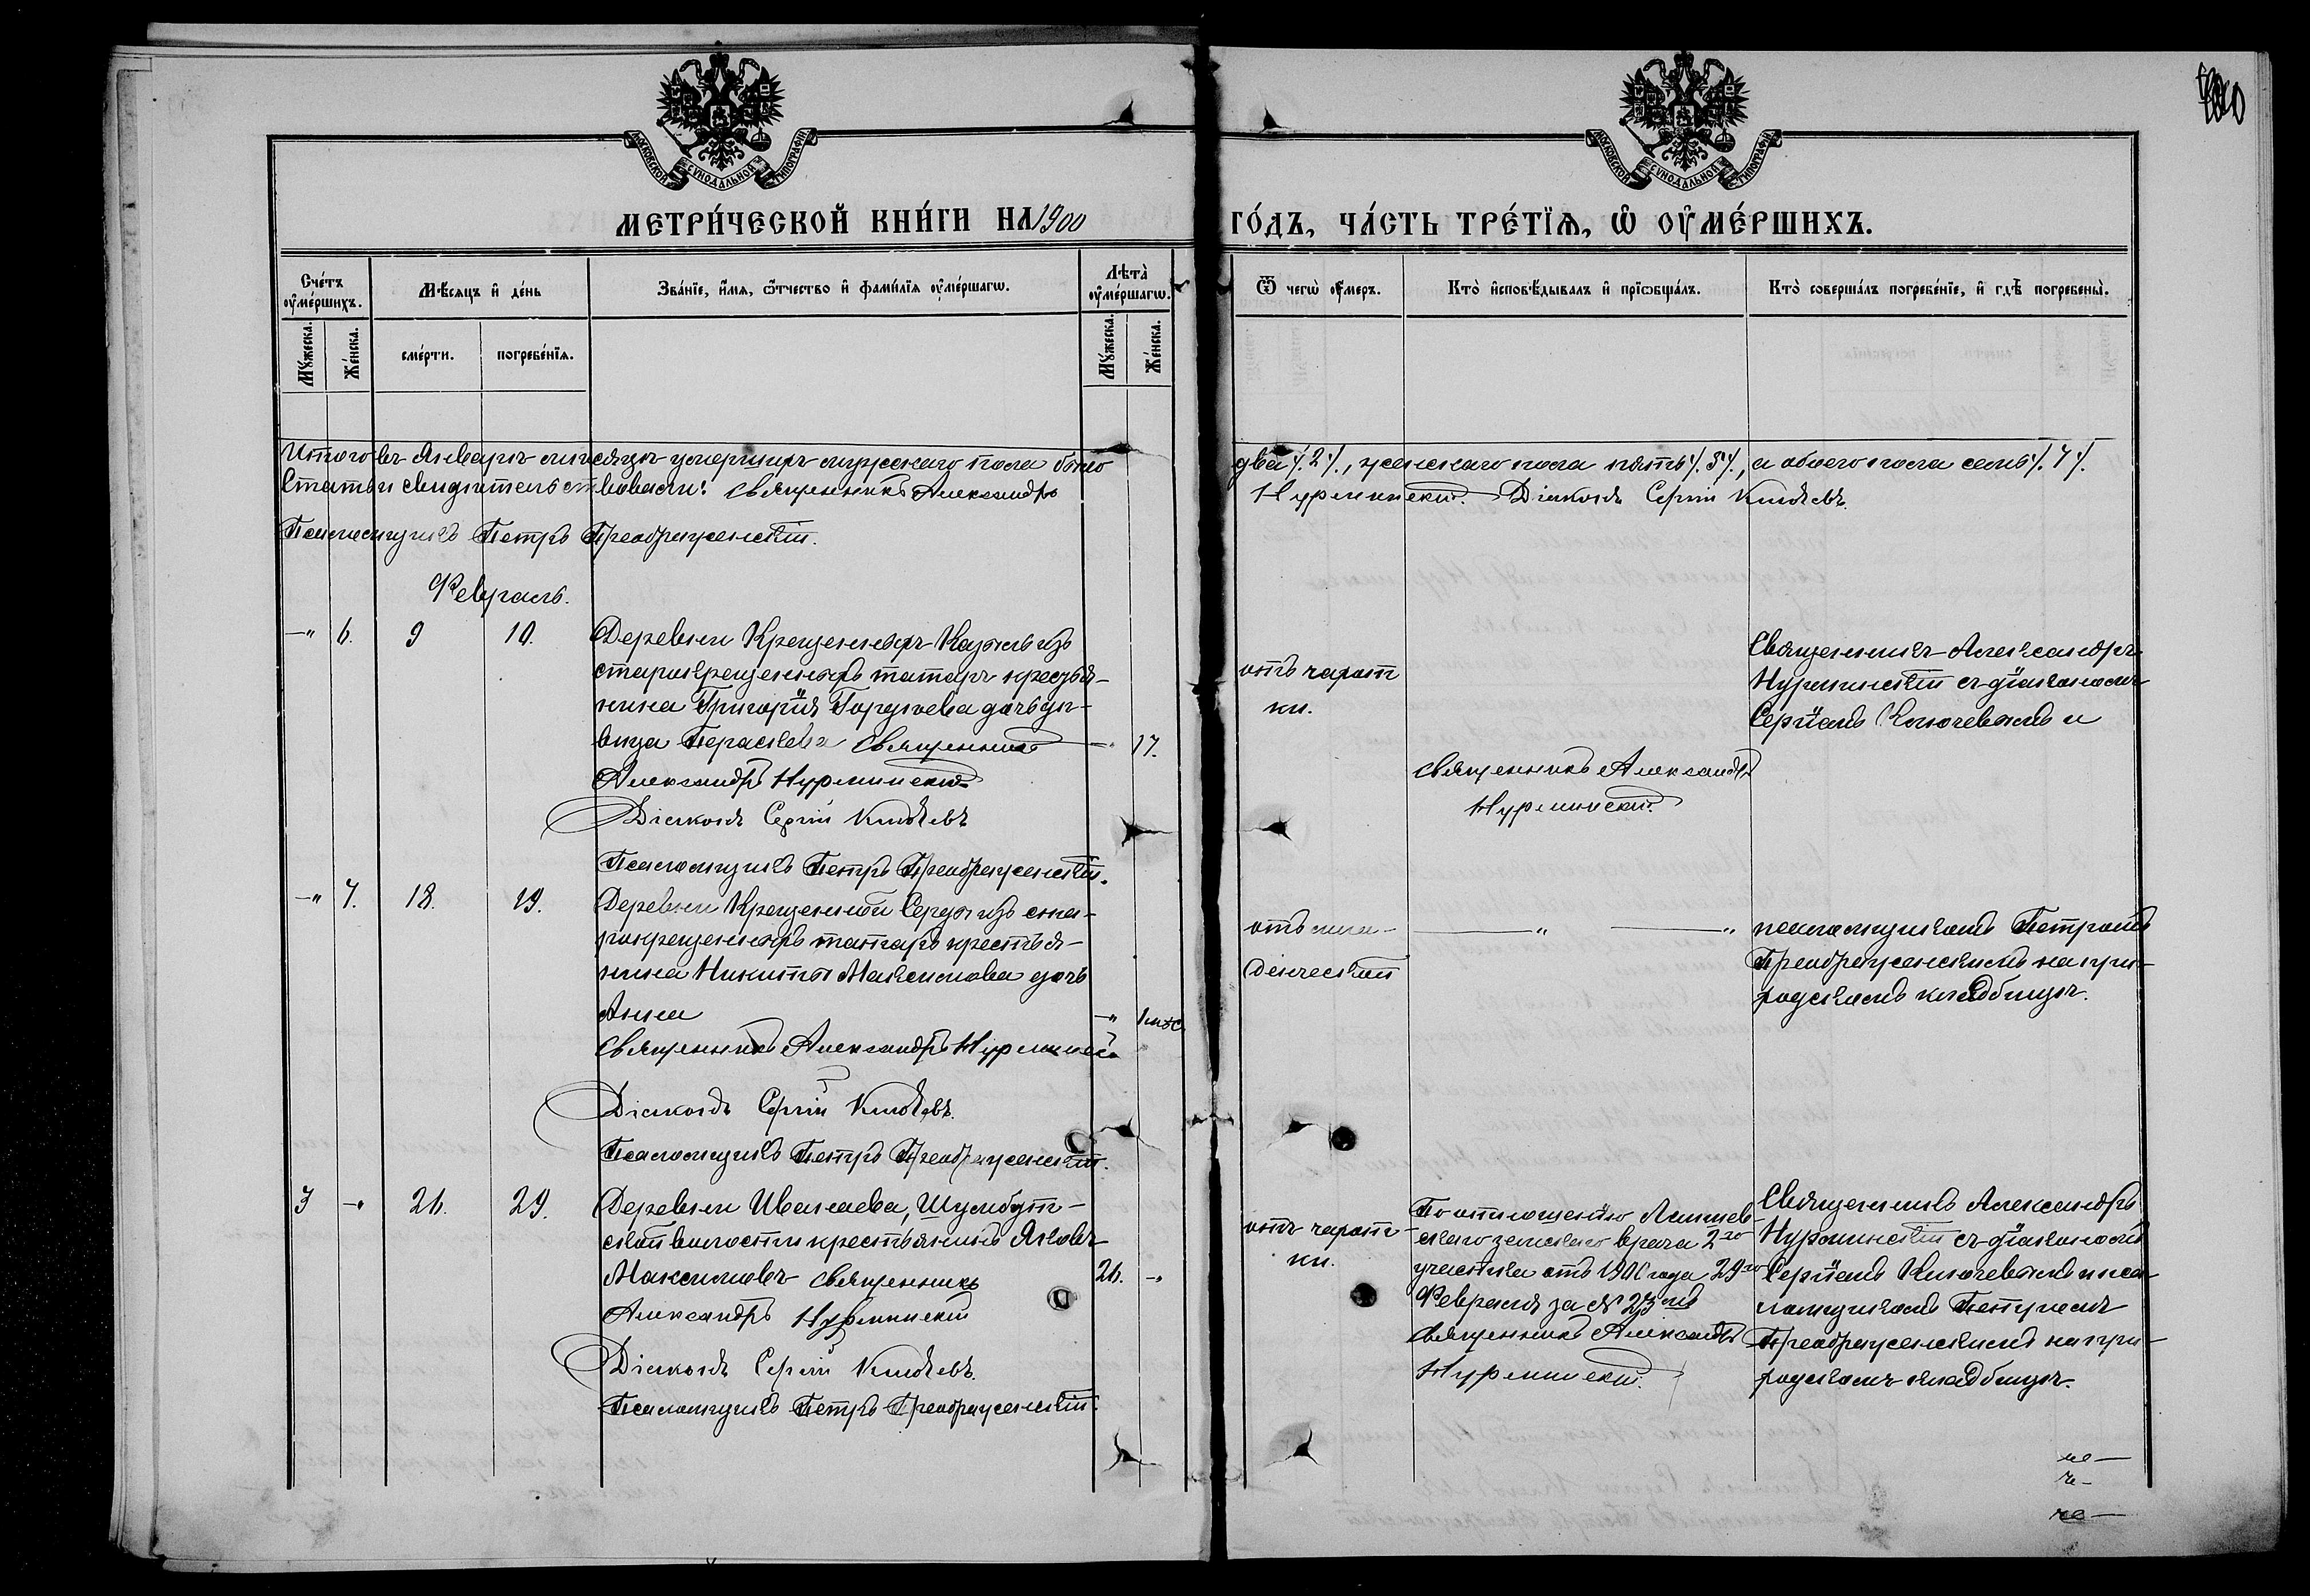 МОСКОВСКОЙ СУНОДАЛЬНОЙ ТИПОГРАФИ
МОСКОВСКОЙ СУНОДАЛЬНОЙ ТИПОГРАФИ
МЕТРИ́ЧЕСКОЙ КНИ́ГИ НА 1900 ГО́ДЪ, ЧА́СТЬ ТРЕ́ТЇѦ, Ѡ҆ ОУ҆МЕ́РШИХЪ.
Сче́тъ оу҆ме́ршихъ.
Мѣ́сѧцъ и҆ де́нь
Зва́нїе, и҆́мѧ, ѻ҆́тчество и҆ фами́лїѧ оу҆ме́ршагѡ.
Лѣта̀ оу҆ме́ршагѡ.
Ѿ чегѡ̀ оу҆́меръ.
Кто̀ и҆сповѣ́дывалъ и҆ прїѡбща́лъ.
Кто̀ соверша́лъ погребе́нїе, и҆ гдѣ̀ погребены̀.
Мꙋ́жеска.
Же́нска.
сме́рти.
погребе́нїѧ.
Мꙋ́жеска.
Же́нска.
Итого въ Январѣ мѣсяцѣ умершихъ мужскаго пола было два ./.2./., женскаго пола пять ./.5./., а обоего пола семь ./.7./.
Статьи свидѣтельствовали: Священникъ Александръ Нурминскій. Діаконъ Сергій Ключевъ.
Псаломщикъ Петръ Преображенскій.
Февраль.
—„ 6. 9 10. Деревни Крещенныхъ Казыль изъ
старокрещенныхъ татаръ крестья-
нина Григорія Гордѣева дочь дѣ-
вица Параскева Священникъ —„ 17.
Александръ Нурминскій
Діаконъ Сергій Ключевъ
Псаломщикъ Петръ Преображенскій.
отъ чахот
ки.
Священникъ Александръ
Нурминскій.
Священникъ Александръ
Нурминскій съ діакономъ
Сергіемъ Ключевымъ и
—„ 7. 18. 19. Деревни Крещенной Серды изъ ста-
рокрещенныхъ татаръ крестья-
нина Никиты Максимова дочь
Анна —„ 1 мѣс.
Священникъ Александръ Нурминскій
Діаконъ Сергій Ключевъ.
Псаломщикъ Петръ Преображенскій.
отъ мла-
денческой
—„ —„
псаломщикомъ Петромъ
Преображенскимъ на при-
ходскомъ кладбищѣ.
3 —„ 26. 29. Деревни Иванаева, Шумбут-
ской волости крестьянинъ Яковъ
Максимовъ Священникъ 26. —„
Александръ Нурминскій
Діаконъ Сергій Ключевъ.
Псаломщикъ Петръ Преображенскій.
отъ чахот-
ки.
По отношенію Лаишев-
скаго земскаго врача 2го
участка отъ 1900 года 29го
Февраля за № 23мъ
Священникъ Александръ
Нурминскій.
Священникъ Александръ
Нурминскій съ діакономъ
Сергіемъ Ключевымъ и пса-
ломщикомъ Петромъ
Преображенскимъ на при-
ходскомъ кладбищѣ.